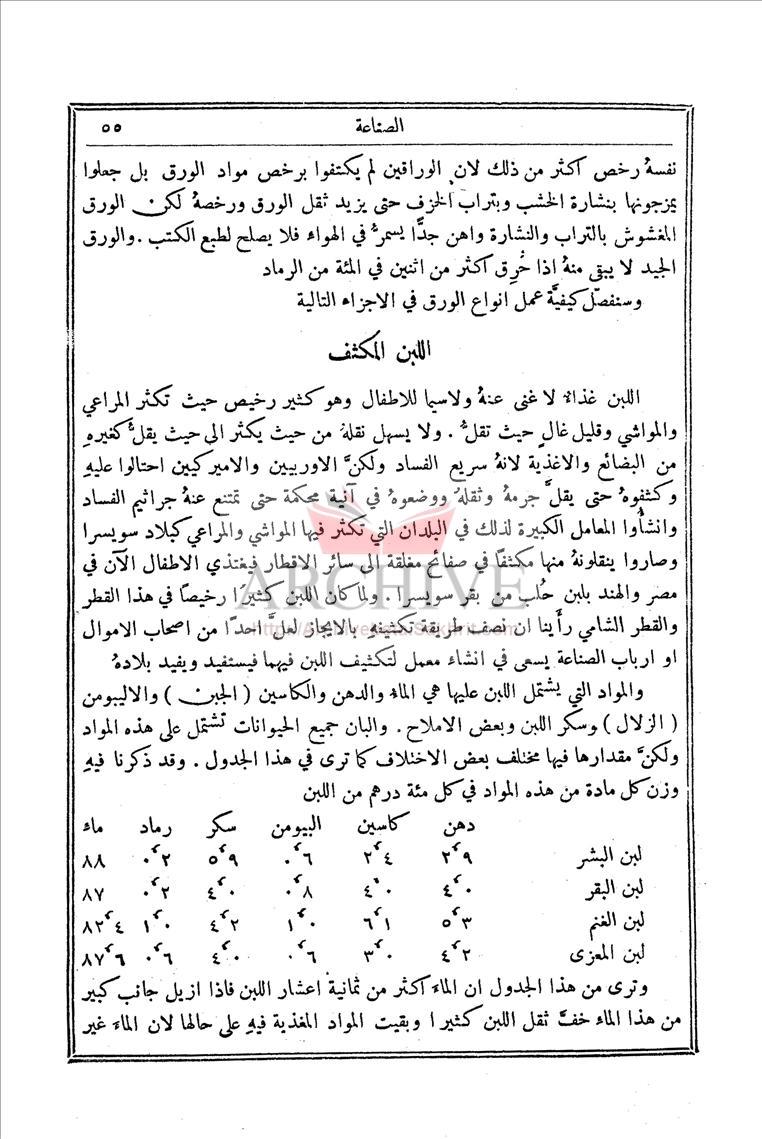 الصناعة ٥٥
نفسهُ رخص اكثر من ذلك لان الوراقين لم يكتفوا برخص مواد الورق بل جعلوا
يمزجونها بنشارة الخشب وبتراب الخزف حتى يزيد ثقل الورق ورخصهُ لكن الورق
المغشوش بالتراب والنشارة واهن جدًّا يسمرُّ في الهواء فلا يصلح لطبع الكتب . والورق
الجيد لا يبقى منهُ اذا حُرِق اكثر من اثنين في المئة من الرماد
وسنفصّل كيفيَّة عمل انواع الورق في الاجزاء التالية
اللبن المكثف
اللبن غذاء لا غنى عنهُ ولاسيما للاطفال وهو كثير رخيص حيث تكثر المراعي
والمواشي وقليل غالٍ حيث تقلُّ . ولا يسهل نقلهُ من حيث يكثر الى حيث يقلُّ كغيرهِ
من البضائع والاغذية لانهُ سريع الفساد ولكنَّ الاوربيين والاميركيين احتالوا عليهِ
وكثفوهُ حتى يقلَّ جرمهُ وثقلهُ ووضعوهُ في آنية محكمة حتى تمتنع عنهُ جراثيم الفساد
وانشأُوا المعامل الكبيرة لذلك في البلدان التي تكثر فيها المواشي والمراعي كبلاد سويسرا
وصاروا ينقلونهُ منها مكثفًا في صفائح مغلقة الى سائر الاقطار فيغتذي الاطفال الآن في
مصر والهند بلبن حُلب من بقر سويسرا . ولما كان اللبن كثيرًا رخيصًا في هذا القطر
والقطر الشامي رأَينا ان نصف طريقة تكثيفهِ بالايجاز لعلَّ احدًا من اصحاب الاموال
او ارباب الصناعة يسعى في انشاء معمل لتكثيف اللبن فيهما فيستفيد ويفيد بلادهُ
والمواد التي يشتمل اللبن عليها هي الماء والدهن والكاسين ( الجبن ) والاليبومن
( الزلال ) وسكر اللبن وبعض الاملاح . والبان جميع الحيوانات تشتمل على هذه المواد
ولكنَّ مقدارها فيها مختلف بعض الاختلاف كما ترى في هذا الجدول . وقد ذكرنا فيهِ
وزن كل مادة من هذه المواد في كل مئة درهم من اللبن
دهن كاسين البيومن سكر رماد ماء
لبن البشر ٢٬٩ ٢٬٤ ٠٬٦ ٥٬٩ ٠٬٢ ٨٨
لبن البقر ٤٬٠ ٤٬٠ ٠٬٨ ٤٬٠ ٠٬٢ ٨٧
لبن الغنم ٥٬٣ ٦٬١ ١٬٠ ٤٬٢ ١٬٠ ٨٢٬٤
لبن المعزى ٤٬٢ ٣٬٠ ٠٬٦ ٤٬٠ ٠٬٦ ٨٧٬٦
وترى من هذا الجدول ان الماء اكثر من ثمانية اعشار اللبن فاذا ازيل جانب كبير
من هذا الماء خفَّ ثقل اللبن كثيرًا وبقيت المواد المغذية فيهِ على حالها لان الماء غير
ARCHIVE